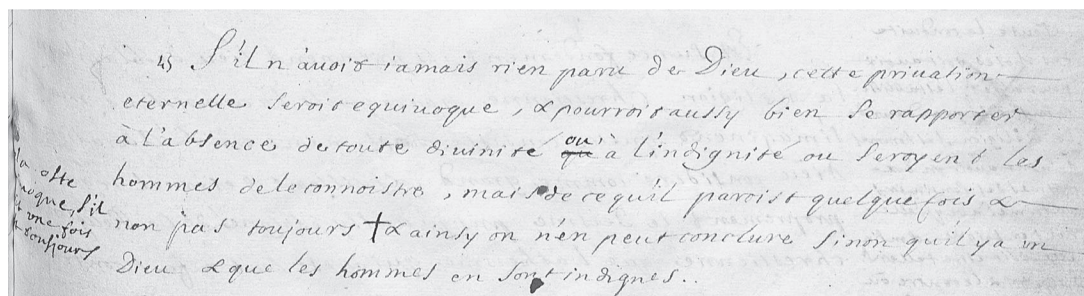 45 S'il n'auoit iamais rien paru de Dieu, cette priuation
eternelle seroit equiuoque, & pourroit aussy bien se rapporter
à l'absence de toute diuinité qu' ou à l'indignité ou seroyent les
hommes de le connoistre, mais de ce qu'il paroist quelque fois &
non pas toujours † & ainsy on n'en peut conclure sinon qu'il y a un
Dieu & que les hommes en sont indignes..
oste
s'il
une fois
toujours